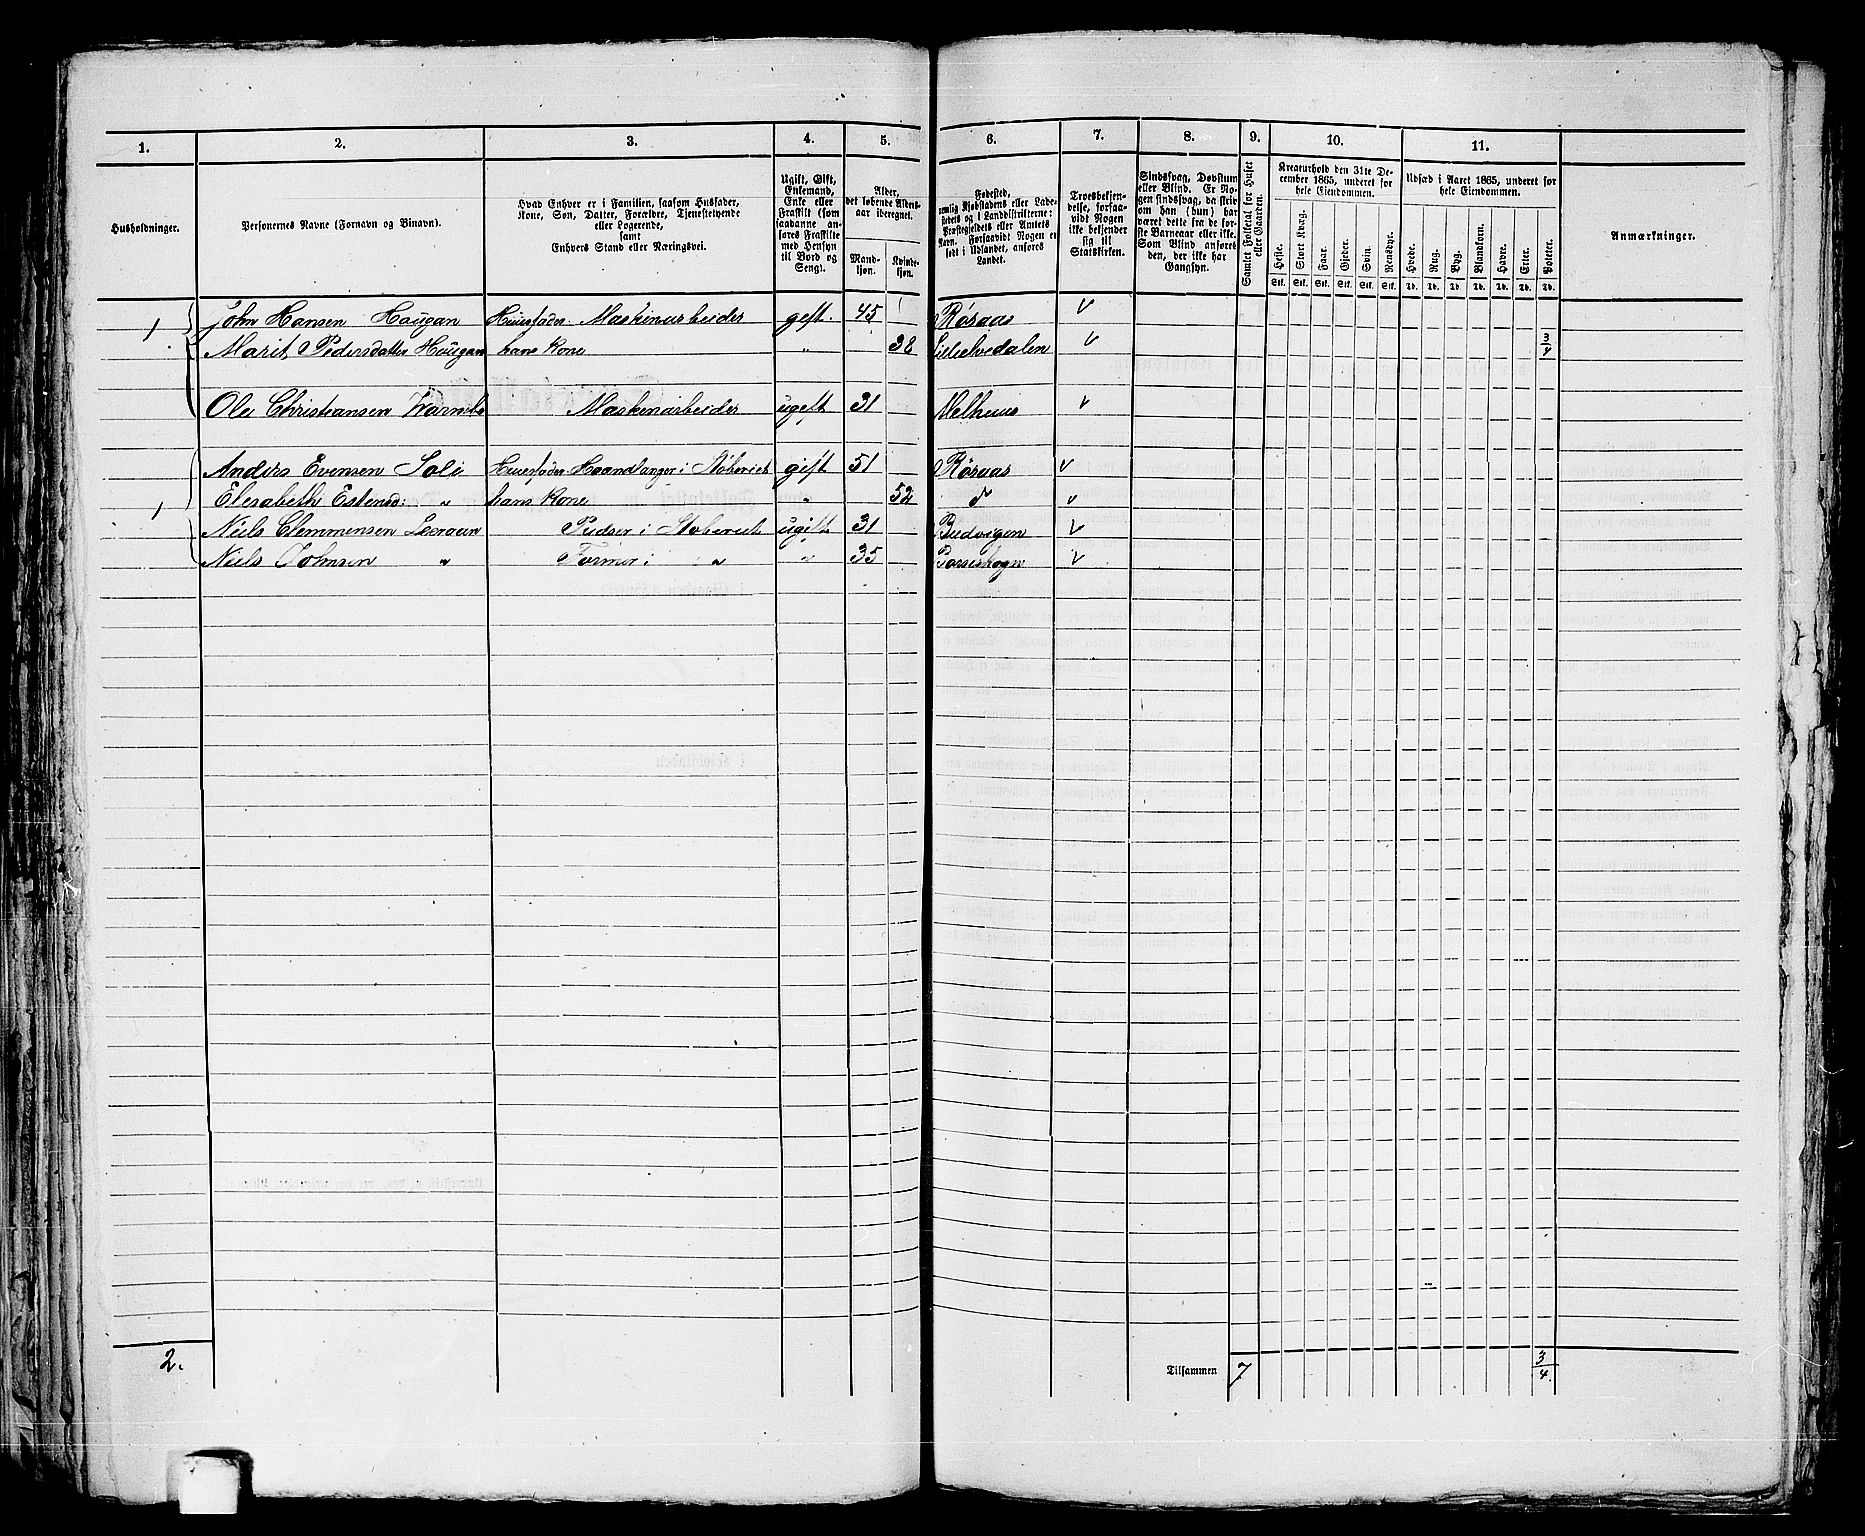 1. 2. 3. 4. 5. 6. 7. 8. 9. 10. 11.
Husholdninger.
Personernes Navne (Fornavn og Binavn).
Hvad Enhver er i Familien, saasom Husfader,
Kone, Søn, Datter, Forældre, Tjenestetyende
eller Logerende,
samt
Enhvers Stand eller Næringsvei.
Ugift, Gift,
Enkemand,
Enke eller
Fraskilt (som
saadanne an-
føres Fraskilte
med Hensyn
til Bord og
Seng).
Alder,
det løbende Alders-
aar iberegnet.
Mand-
kjøn.
Kvinde-
kjøn.
Fødested,
nemlig Kjøbstadens eller Lade-
stedets og i Landdistrikterne:
Præstegjeldets eller Annexets
Navn. Forsaavidt Nogen er
født i Udlandet, anføres
Landet.
Troesbekjen-
delse, forsaa-
vidt Nogen
ikke bekjender
sig til
Statskirken.
Sindssvag, Døvstum
eller Blind. Er No-
gen sindssvag, da skriv
om han (hun) har
været dette fra de før-
ste Barneaar eller ikke.
Som Blind anføres
den, der ikke har
Gangsyn.
Samlet Folketal for Huset
eller Gaarden.
Kreaturhold den 31te De-
cember 1865, underet for
hele Eiendommen.
Heste. Stort Kvæg. Faar. Gjeder. Svin. Rensdyr.
Stk. Stk. Stk. Stk. Stk. Stk.
Udsæd i Aaret 1865, underet for
hele Eiendommen.
Hvede. Rug. Byg. Blandkorn. Havre. Erter. Poteter.
Td. Td. Td. Td. Td. Td. Td.
Anmærkninger.
1 John Hansen Haugan Huusfader. Maskinarbeider gift. 45 Røraas
Marit Pedersdatter Haugan hans Kone " 38 Lilleelvedalen 3/4
Ole Christiansen Maskinarbeider ugift 31 Melhuus
Anders Evensen Soli Huusfader Haandlanger i Støberiet gift 51 Røraas
1 Elisabeth Estensd: " hans Kone " 52 d
Niels Clemmensen Leeraen Pudser i Støberiet ugift 31 Budvigen
Niels Johnsen " Former i " " 35
2. Tilsammen 7 3/4